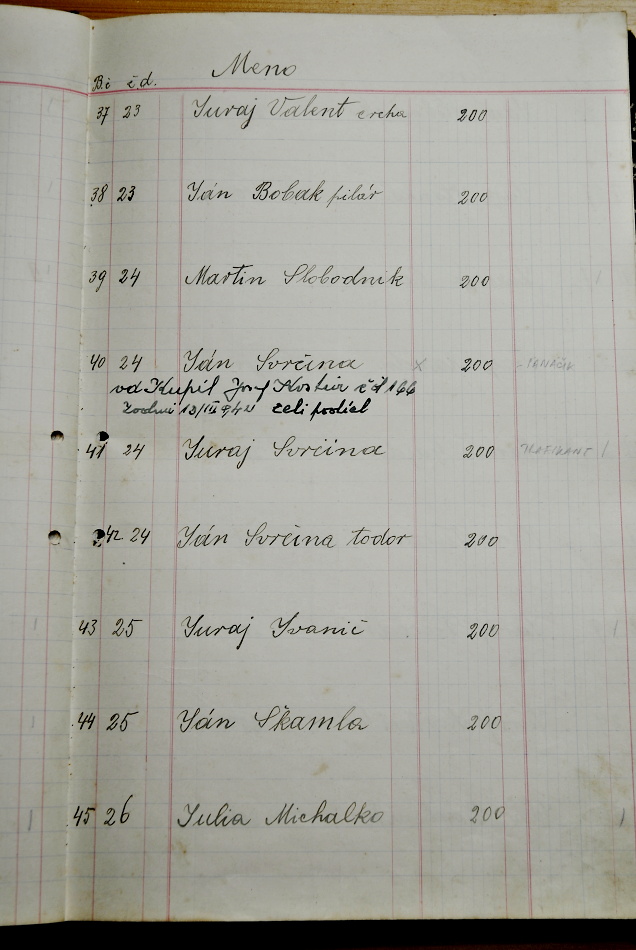 B.č č.d. Meno
37 23 Juraj Valent crcha 200
38 23 Ján Bobak pilár 200
39 24 Martin Slobodnik 200
40 24 Ján Svrčina x 200
od Kupil Jozef Kostúr č.d 166
13/III 942 celi podiel
41 24 Juraj Svrčina 200
42 24 Ján Svrčina todor 200
43 25 Juraj Ivanič 200
44 25 Ján Škamla 200
45 26 Julia Michalko 200